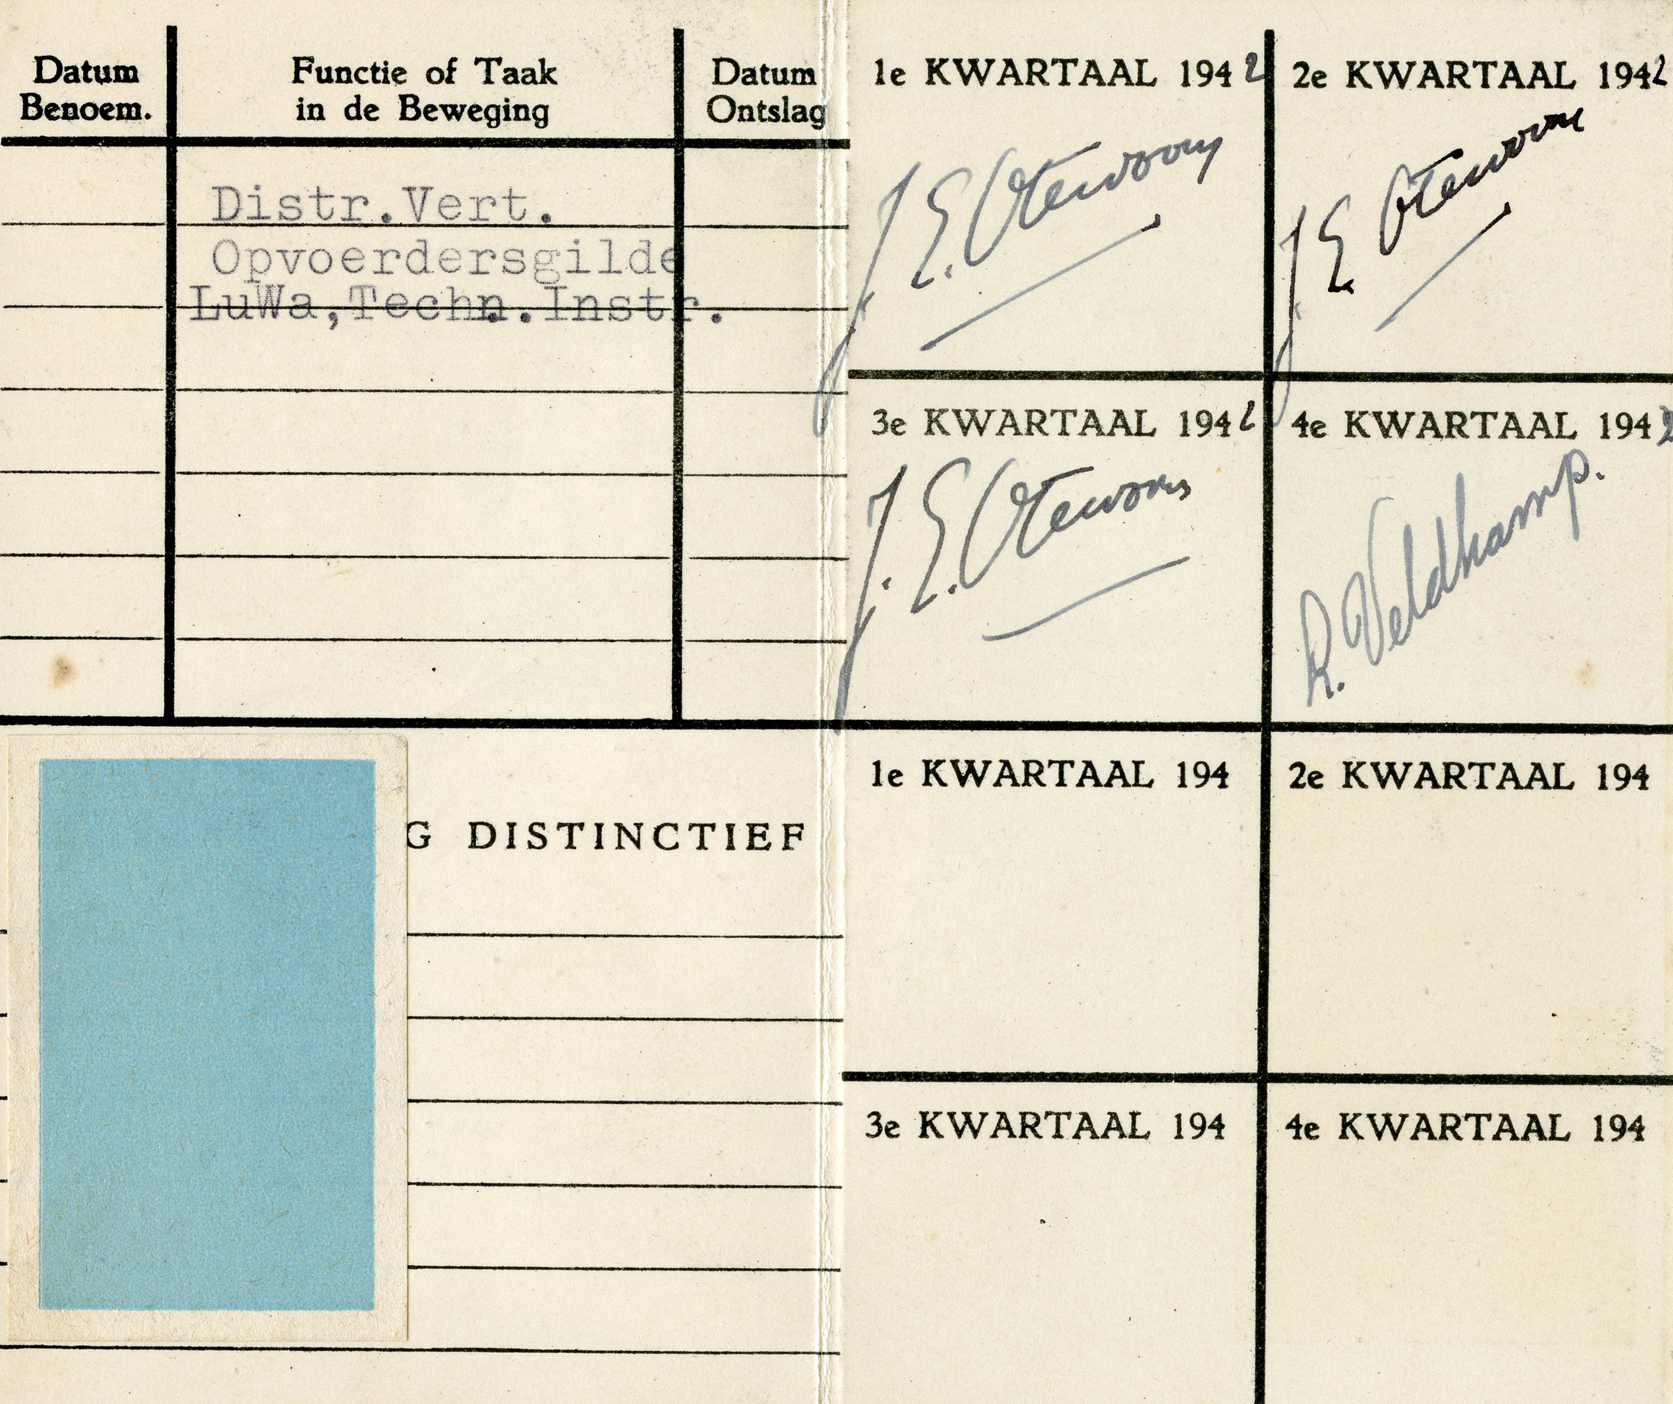 Datum Benoem.
Functie of Taak in de Beweging
Datum Ontslag
Distr.Vert.
Opvoerdersgilde
LuWa,Techn.Instr.
G DISTINCTIEF
1e KWARTAAL 1942
J. E.
2e KWARTAAL 1942
J. E.
3e KWARTAAL 1942
J. E.
4e KWARTAAL 1942
R. Veldkamp.
1e KWARTAAL 194
2e KWARTAAL 194
3e KWARTAAL 194
4e KWARTAAL 194